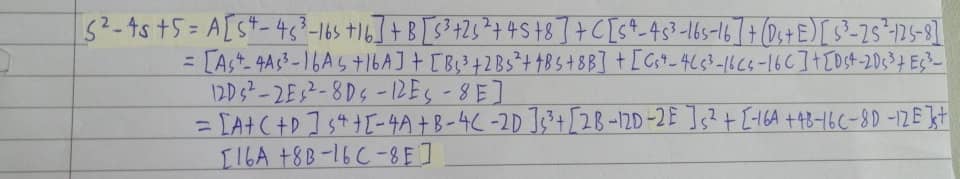 s²-4s+5 = A[s⁴-4s³-16s+16] + B[s³+2s²+4s+8] + C[s⁴-4s³-16s-16] + (Ds+E)[s³-2s²-12s-8]
= [As⁴-4As³-16As+16A] + [Bs³+2Bs²+4Bs+8B] + [Cs⁴-4Cs³-16Cs-16C] + [Ds⁴-2Ds³+Es³-
12Ds²-2Es²-8Ds-12Es-8E]
= [A+C+D]s⁴+[-4A+B-4C-2D]s³+[2B-12D-2E]s²+[-16A+4B-16C-8D-12E]s+
[16A+8B-16C-8E]